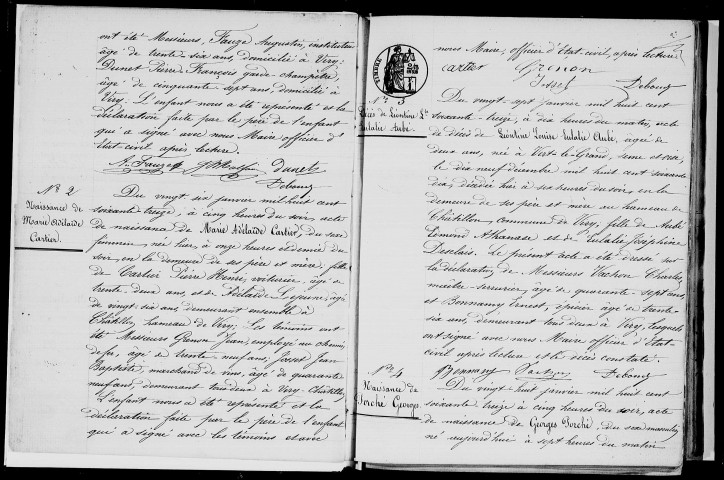 ont été Messieurs, Fauze Augustin, instituteur
âgé de trente-six ans, domicilié à Viry;
Dunet Pierre François garde-champêtre,
âgé de cinquante sept ans domicilié à
Viry. L'enfant nous a été représenté et la
déclaration faite par le père de l'enfant
qui a signé avec nous Maire officier d'
Etat-civil après lecture.
A. Fauze Dunet
Debouz
N° 2
Naissance de
Marie Adélaïde
Cartier.
Du vingt six janvier mil huit cent
soixante treize, à cinq heures du soir, acte
de naissance de Marie Adélaïde Cartier, du sexe
féminin née hier, à onze heures et demie du
soir, en la demeure de ses père et mère; fille
de Cartier Pierre Henri, voiturier, âgé de
trente deux ans, et de Adélaïde Lejeune, âgée
de vingt six ans, demeurant ensemble à
Châtillon, hameau de Viry. Les témoins ont
été Messieurs Grenon Jean, employé au chemin
de fer, âgé de trente neuf ans; Josset Jean
Baptiste, marchand de vins, âgé de quarante
neuf ans, demeurant tous deux à Viry-Châtillon.
L'enfant nous a été représenté et la
déclaration faite par le père de l'enfant
qui a signé avec les témoins et avec
nous Maire, officier d'Etat-civil, après lecture
Cartier Grenon
Josset Debouz
TIMBRE
N° 3
Décès de Léontine Lse
Eulalie Aubé.
Du vingt sept janvier mil huit cent
soixante-treize, à dix heures du matin, acte
de décès de Léontine Louise Eulalie Aubé, âgée de
deux ans, née à Vert-le-Grand, seine et oise,
le dix neuf décembre mil huit cent soixante
dix, décédée hier à six heures du soir, en la
demeure de ses père et mère au hameau de
Châtillon, commune de Viry, fille de Aubé
Edmond Athanase et de Eulalie Joséphine
Desclais. Le présent acte a été dressé sur
la déclaration de Messieurs Vachon Charles,
maître-serrurier, âgé de quarante sept ans,
et Bonnamy Ernest, épicier âgé de trente
six ans, demeurant tous deux à Viry, lesquels
ont signé avec nous Maire officier d'Etat
civil après lecture et le décès constaté.
Bonnamy Debouz
N° 4
Naissance de
Porché Georges.
Du vingt huit janvier mil huit cent
soixante treize à cinq heures du soir, acte
de naissance de Georges Porché, du sexe masculin
né aujourd'hui à sept heures du matin